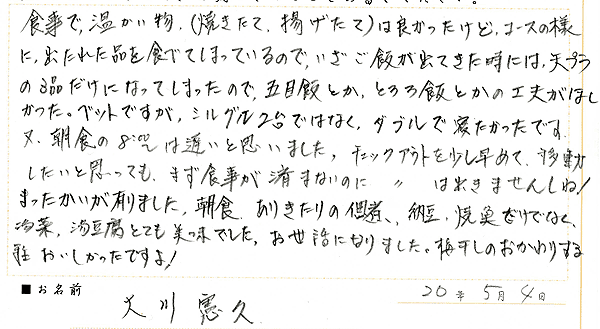 食事で、温かい物、(焼きたて、揚げたて)は良かったけど、コースの様
に、出たれた品を食べてしまっているので、いざご飯が出てきた時には、天プラ
の3品だけになってしまったので、五目飯とか、とろろ飯とかの工夫がほし
かった。ベットですが、シルグル2台ではなく、ダブルで寝たかったです。
又、朝食の8:00は遅いと思いました。チェックアウトを少し早めて、移動
したいと思っても、まず食事が済まないのに 〃 は出きませんしね!
まったかいが有りました、朝食、ありきたりの佃煮、納豆、焼魚だけでなく、
冷菜、湯豆腐とても美味でした。お世話になりました。梅干しのおかわりする
程おいしかったですよ!
■お名前 大川 憲久
20年 5月 4日